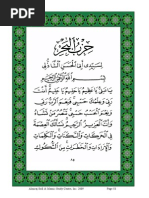 حزب البحر
لسيدي أبي الحسن الشاذلي
بسم الله الرحمن الرحيم
يا علي يا عظيم يا حليم يا عليم أنت
ربي وعلمك حسبي فنعم الرب
ربي ونعم الحسب حسبي تنصر من تشاء
وأنت العزيز الرحيم نسألك العصمة
في الحركات والسكنات والكلمات
والإرادات والخطرات من الشكوك
٨٥